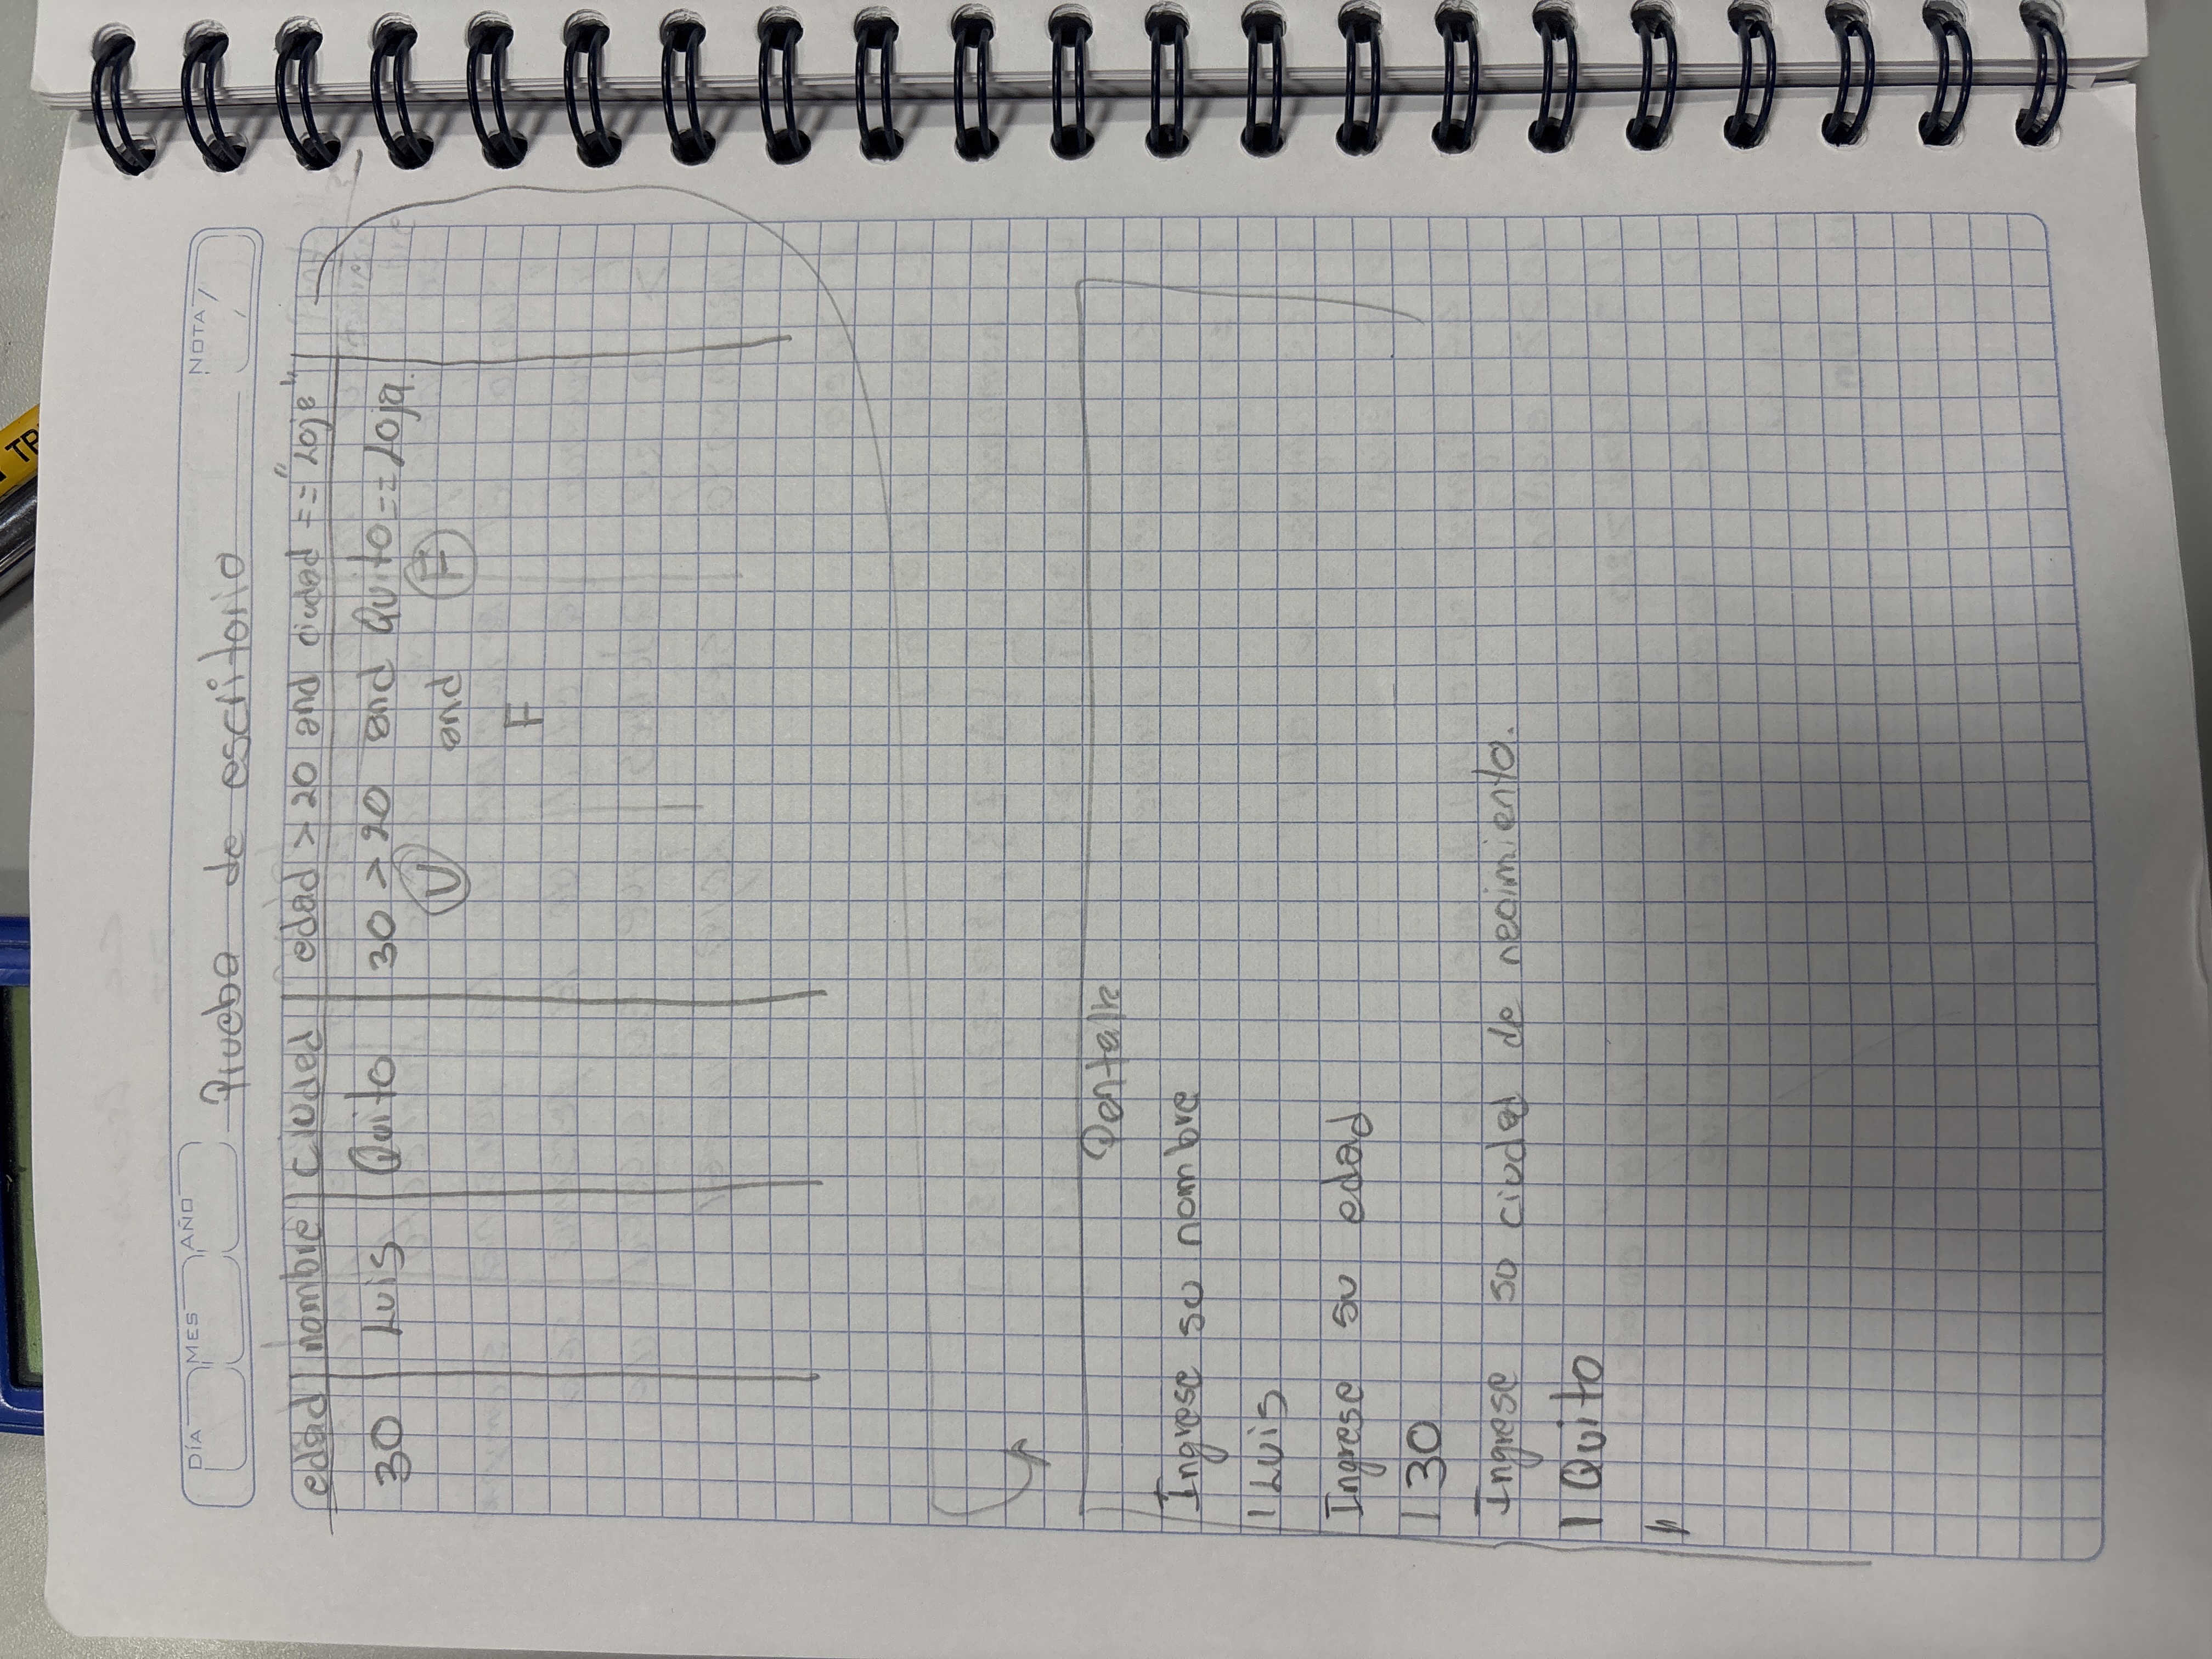 TR
DÍA MES AÑO Prueba de escritorio NOTA
edad nombre ciudad edad > 20 and ciudad == "Loja"
30 Luis Quito 30 > 20 and Quito == Loja.
V and F
F
Pantalla
Ingrese su nombre
| Luis
Ingrese su edad
| 30
Ingrese su ciudad de necimiento.
| Quito